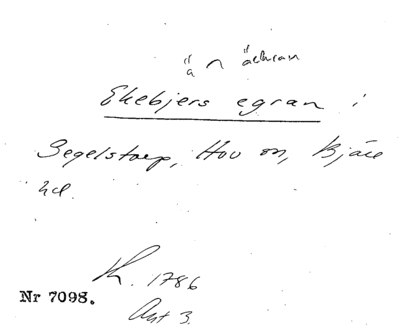 ä n äekran
Ekebjers egran i
Segelstorp, Hov sn, Bjäre
hd.
K. 1786
Nr 7098.
Akt 3.